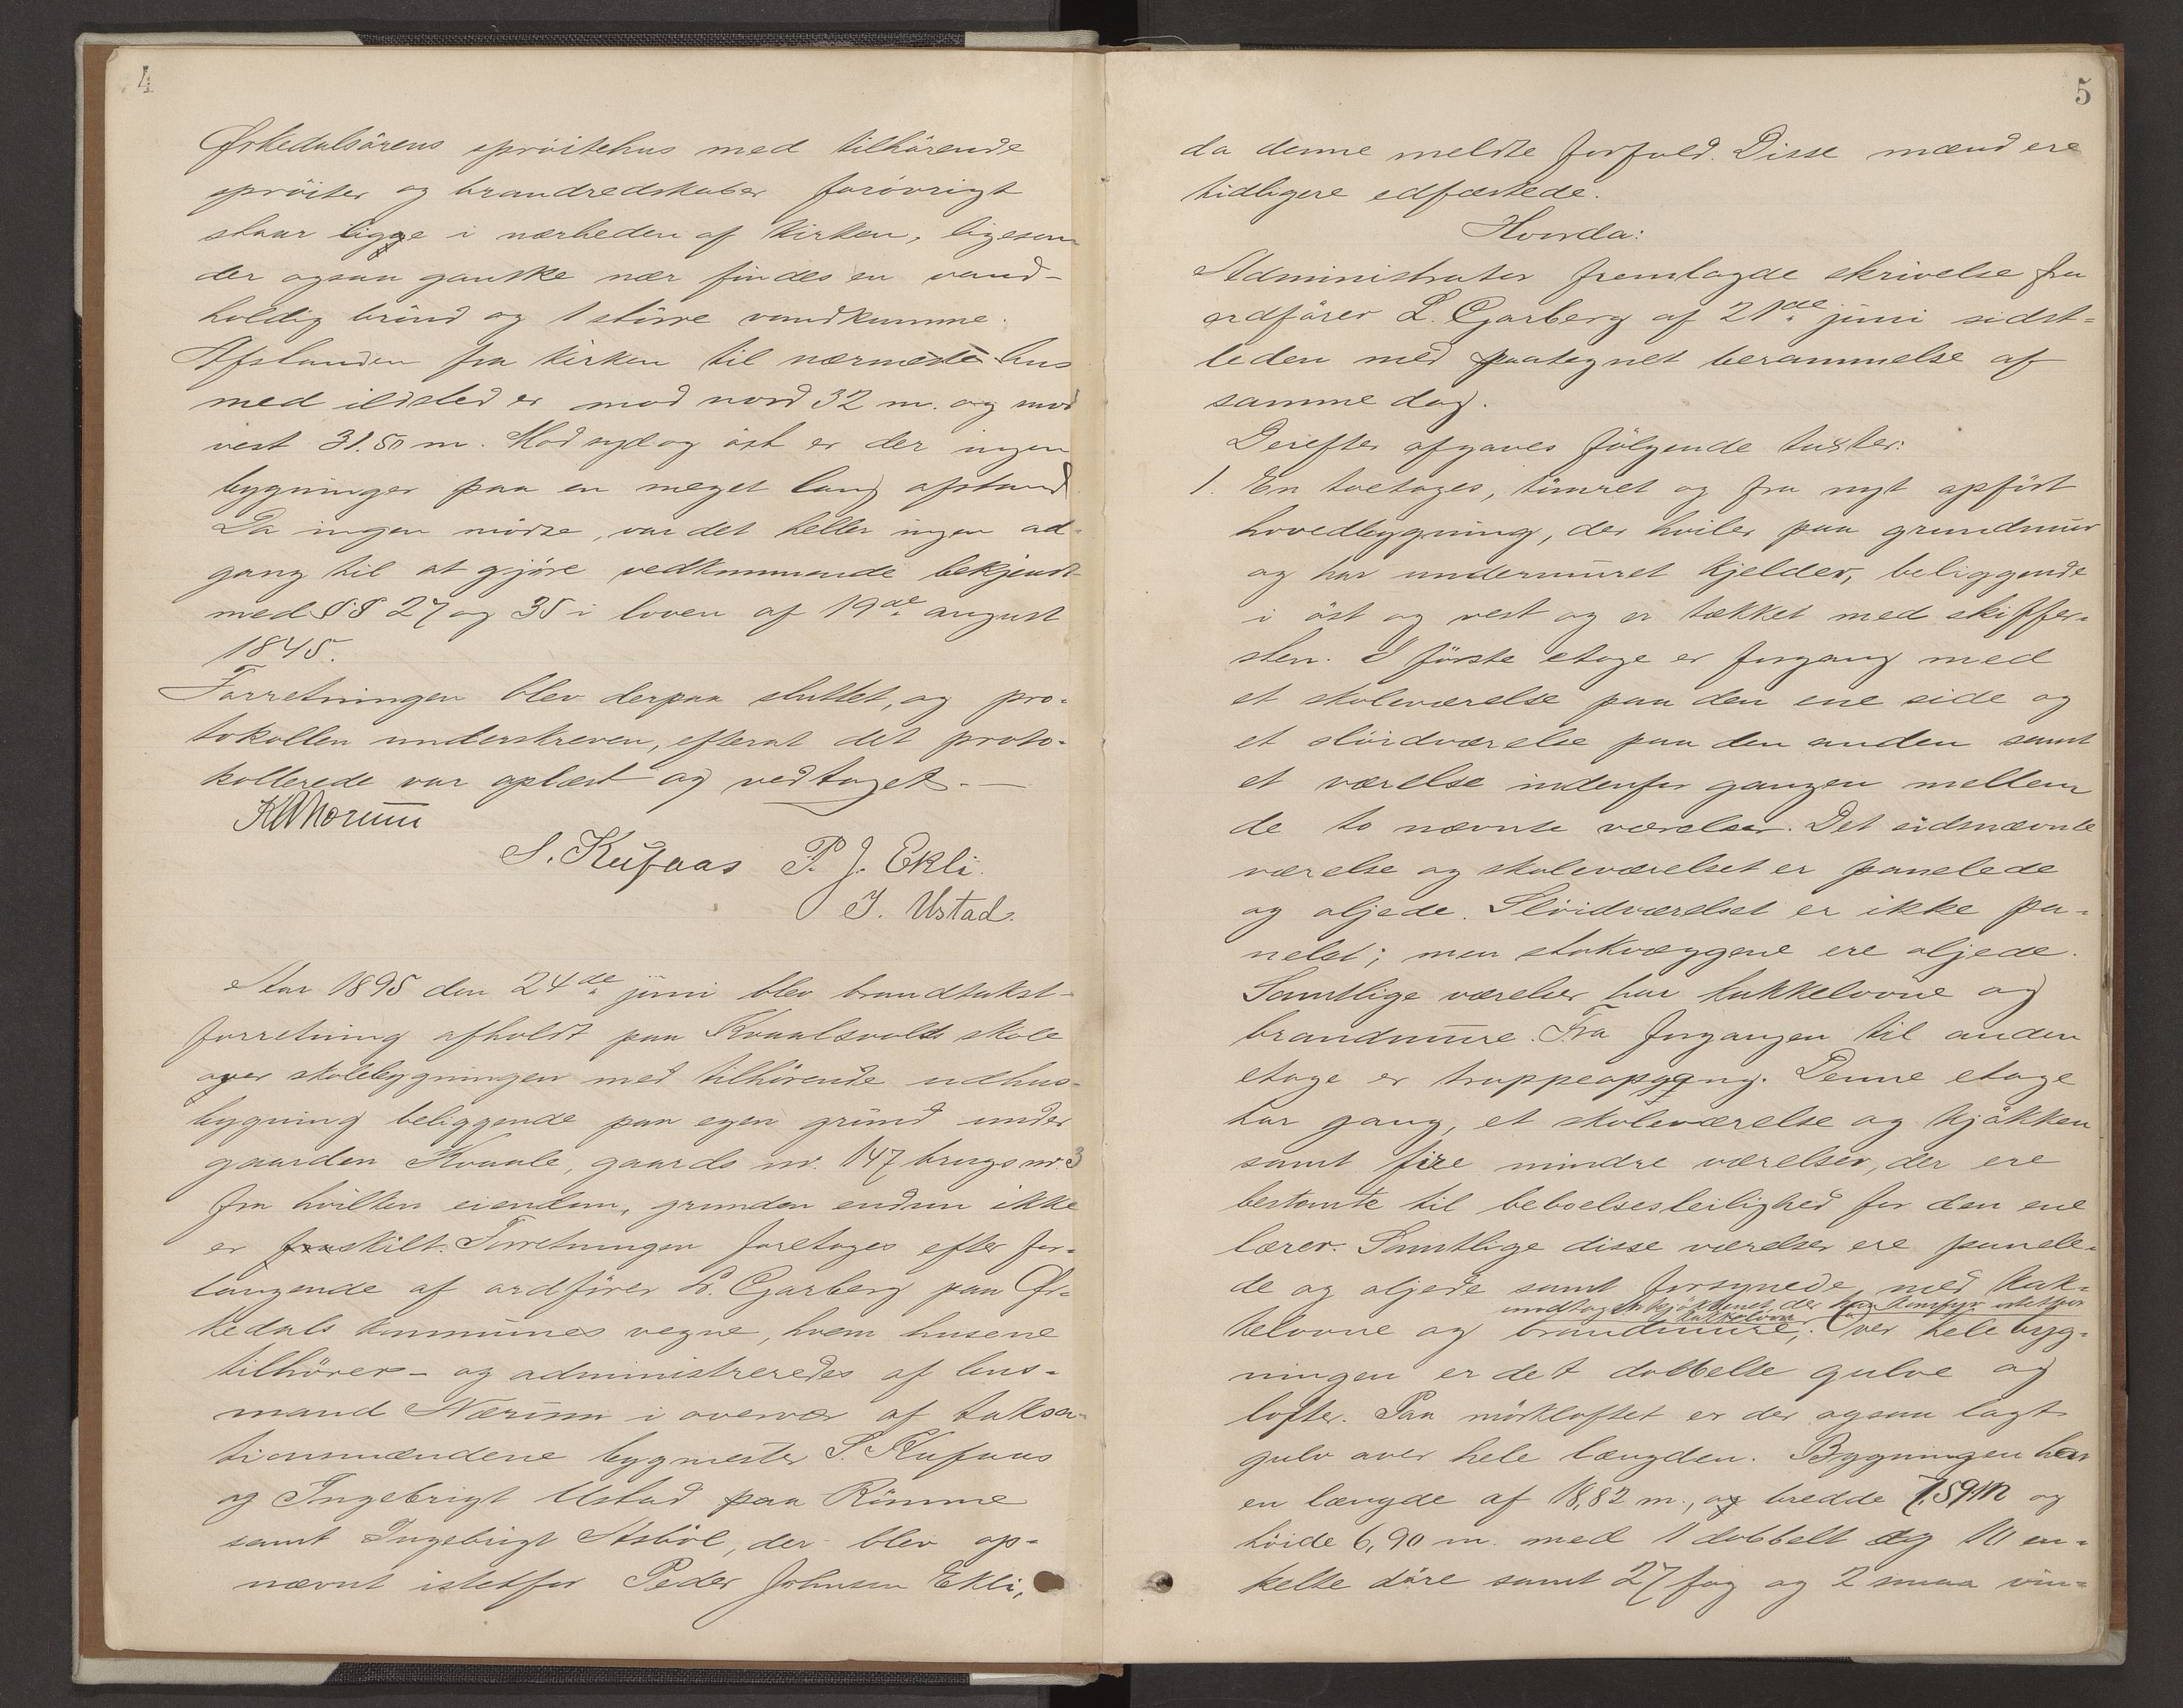 4
Ørkedalsörens spröitehus med tilhörende
spröiter og brandredskaber forövrigt
staar ligge i nærheden af kirken, ligesom
der ogsaa ganske nær findes en vand-
holdig brönd og 1 större vandkumme.
Afstanden fra kirken til nærmeste hus
med ildsted er mod nord 32 m. og mod
vest 31.50 m. Mod syd og öst er der ingen
bygninger paa en meget lang afstand
Da ingen mödte, var det heller ingen ad-
gang til at gjöre vedkommende bekjendt
med §§ 27 og 35 i loven af 19de august
1845.
Forretningen blev derpaa sluttet, og pro-
tokollen underskreven, efterat det proto-
kollerede var oplæst og vedtaget.—
S. Kufaas P. J. Ekli.
I. Ustad.
Aar 1895 den 24de juni blev brandtakst-
forretning afholdt paa Kvaalsvolds skole
over skolebygningen med tilhörende udhus-
bygning beliggende paa egen grund under
gaarden Kvaale, gaards nr. 147 brugs nr. 3
fra hvilken eiendom, grunden endnu ikke
er fraskilt. Forretningen foretages efter for-
langende af ordförer L. Garberg paa Ør-
kedals kommunes vegne, hvem husene
tilhörer - og administreredes af lens-
mand Nærum i overvær af taksa-
tionsmændene bygmester S. Kufaas
og Ingebrigt Ustad paa Römme
samt Ingebrigt Asböl, der blev op-
nævnt istetfor Peder Johnsen Ekli,
5
da denne meldte forfald. Disse mænd ere
tidligere edfæstede.
Hvorda:
Administrator fremlagde skrivelse fra
ordförer L. Garberg af 21de juni sidst-
leden med paategnet berammelse af
samme dag.
Derefter afgaves fölgende takster:
1. En toetages, tömret og fra nyt opfört
hovedbygning, der hviler paa grundmur
og har undermuret kjelder, beliggende
i öst og vest og er tækket med skiffer-
sten. I förste etage er forgang med
et skoleværelse paa den ene side og
et slöidværelse paa den anden samt
et værelse indenfor gangen mellem
de to nævnte værelser. Det sidsnævnte
værelse og skoleværelset er panelede
og oljede. Slöidværelset er ikke pa-
nelet; men stokvæggene ere oljede.
Samtlige værelser har kakkelovne og
brandmure. Fra forgangen til anden
etage er trappeopgang. Denne etage
har gang, et skoleværelse og kjökken
samt fire mindre værelser, der ere
bestemte til beboelsesleilighed for den ene
lærer. Samtlige disse værelser ere panele-
de og oljede samt forsynede med kak-
undtagen kjökkenet, der har komfyr istetfor
kakkelovn
kelovne og brandmure, Over hele byg-
ningen er det dobbelte gulve og
lofter. Paa mörkloftet er der ogsaa lagt
gulv over hele længden. Bygningen har
en længde af 18,82 m., og bredde 7,59 m og
höide 6,90 m. med 1 dobbelt og 10 en-
kelte döre samt 27 fag og 2 smaa vin-